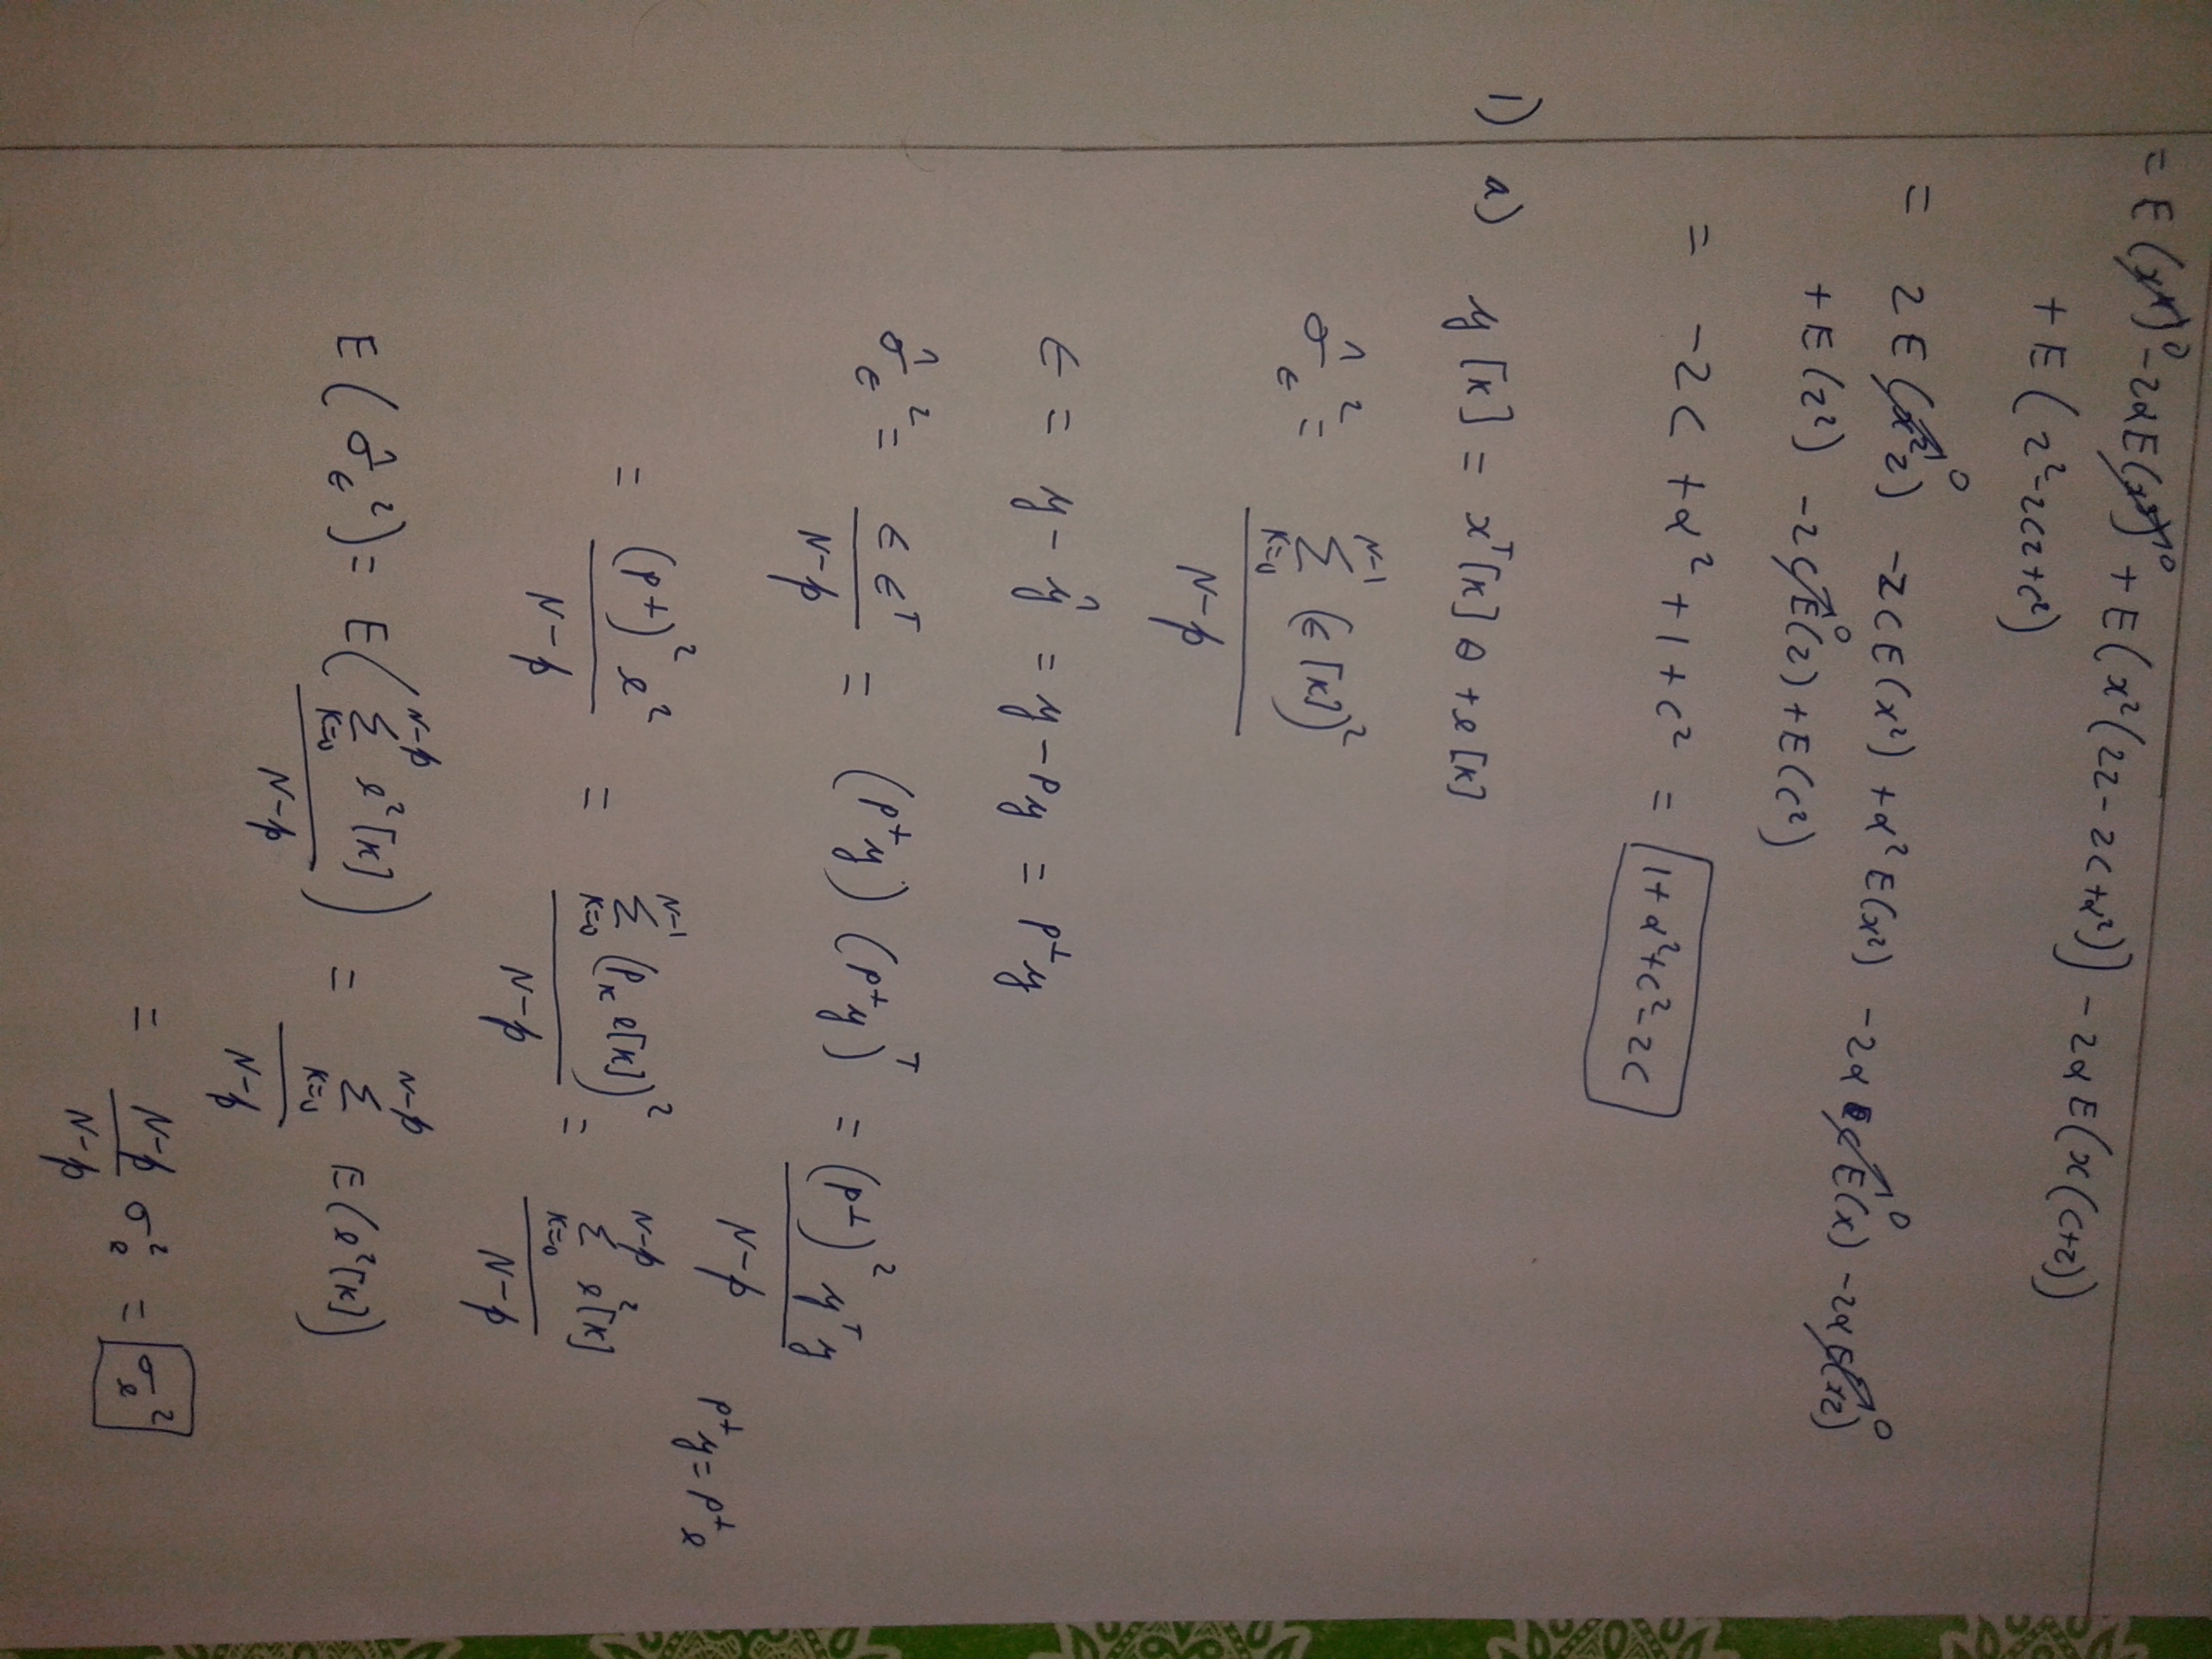 = E(x⁴)⁰ - 2αE(x³)⁰ + E(x²(2z - 2c + α²)) - 2αE(x(c+z))
+ E(z² - 2cz + c²)
= 2E(x²z)⁰ - 2cE(x²) + α²E(x²) - 2αcE(x)⁰ - 2αE(xz)⁰
+ E(z²) - 2cE(z)⁰ + E(c²)
= -2c + α² + 1 + c² = 1 + α² + c² - 2c
1) a) y[k] = xᵀ[k]θ + e[k]
σ̂_ϵ² = Σ_{k=0}^{N-1} (ϵ[k])² / N-p
ϵ = y - ŷ = y - Py = P^⊥y
σ̂_ϵ² = ϵϵᵀ / N-p = (P^⊥y)(P^⊥y)ᵀ = (P^⊥)² yᵀy / N-p
P^⊥y = P^⊥e
= (P^⊥)² e² / N-p = Σ_{k=0}^{N-1} (P_k e[k])² / N-p = Σ_{k=0}^{N-p} e²[k] / N-p
E(σ̂_ϵ²) = E(Σ_{k=0}^{N-p} e²[k] / N-p) = Σ_{k=0}^{N-p} E(e²[k]) / N-p
= N-p / N-p σ_e² = σ_e²